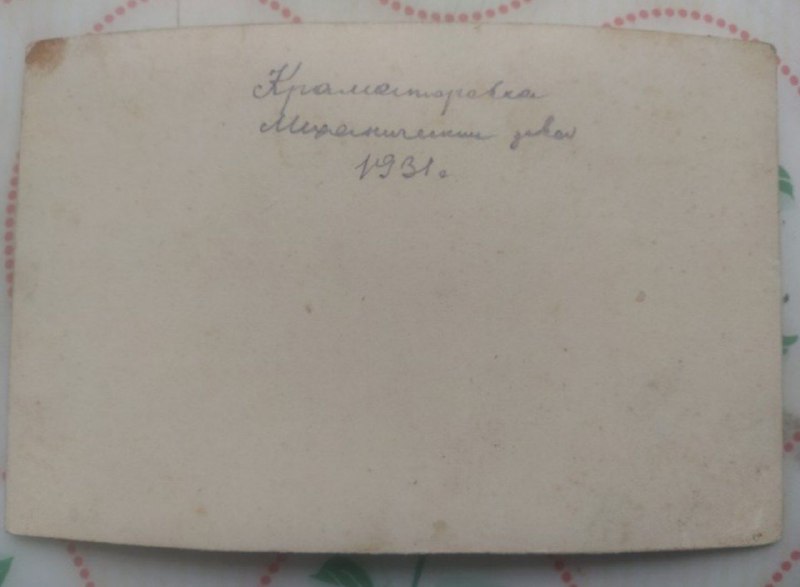 Краматоровка
Механический завод
1931 г